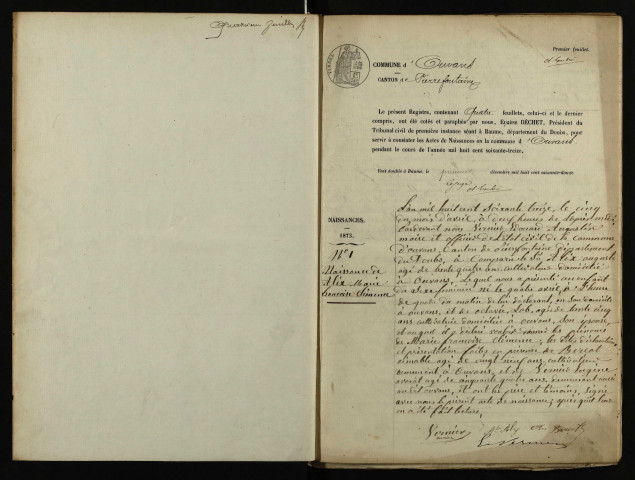 Quatrième feuillet
Premier feuillet.
TIMBRE
COMMUNE d'Ouvans
CANTON de Pierrefontaine
Le présent Registre, contenant Quatre feuillets, celui-ci et le dernier
compris, ont été cotés et paraphés par nous, DÉCHET, Président du
Tribunal civil de première instance séant à Baume, département du Doubs, pour
servir à constater les Actes de Naissances en la commune d'Ouvans
pendant le cours de l'année mil huit cent soixante-treize,
Fait double à Baume, le premier décembre mil huit cent soixante-douze.
NAISSANCES.
1873.
N° 1
Naissance de
Alix Marie
Françoise Clémence
L'an mil huit cent soixante treize, le cinq
du mois d'avril, à heures de
pardevant nous Vernier Edouard Augustin
maire et officier de l'état civil de la commune
d'ouvans, Canton de pierrefontaine département
du Doubs, à comparu le Sr Alix auguste
agé de trente quatre ans cultivateur domicilié
à Ouvans, lequel nous a présenté un enfant
du sexe féminin né le quatre avril, à heure
de du matin de lui déclarant, en son domicile
à ouvans, et de agée de trente cinq
ans cultivatrice domiciliée à ouvans, son épouse,
et auquel il a déclaré vouloir donner les prénoms
de Marie françoise clémence; les dites déclaration
et présentation faites en présence de
aimable agé de vingt neuf ans cultivateur
demeurant à Ouvans, et de Vernier eugène
agé de cinquante quatre ans demeurant aussi
au dit ouvans, et ont les père et témoins, signé
avec nous le présent acte de naissance, après qu'il leur
en a été fait lecture.
Vernier
Alix
E. Vernier